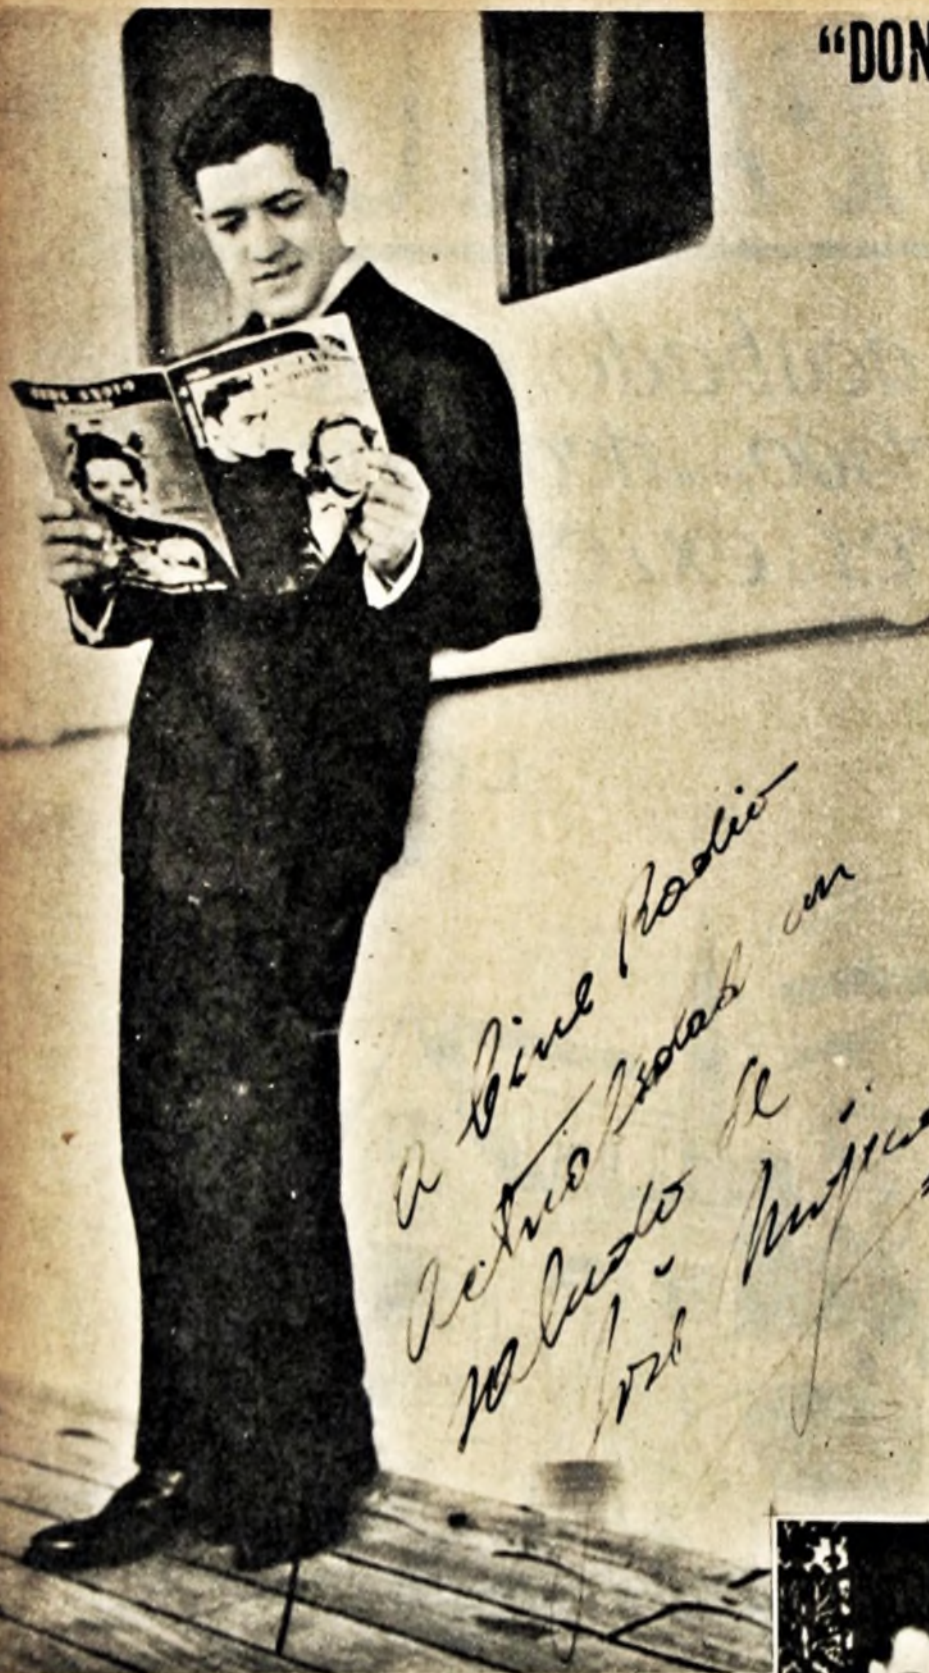 “DON
a Cine Radio
Actualidad un
saludo de
José Mujica